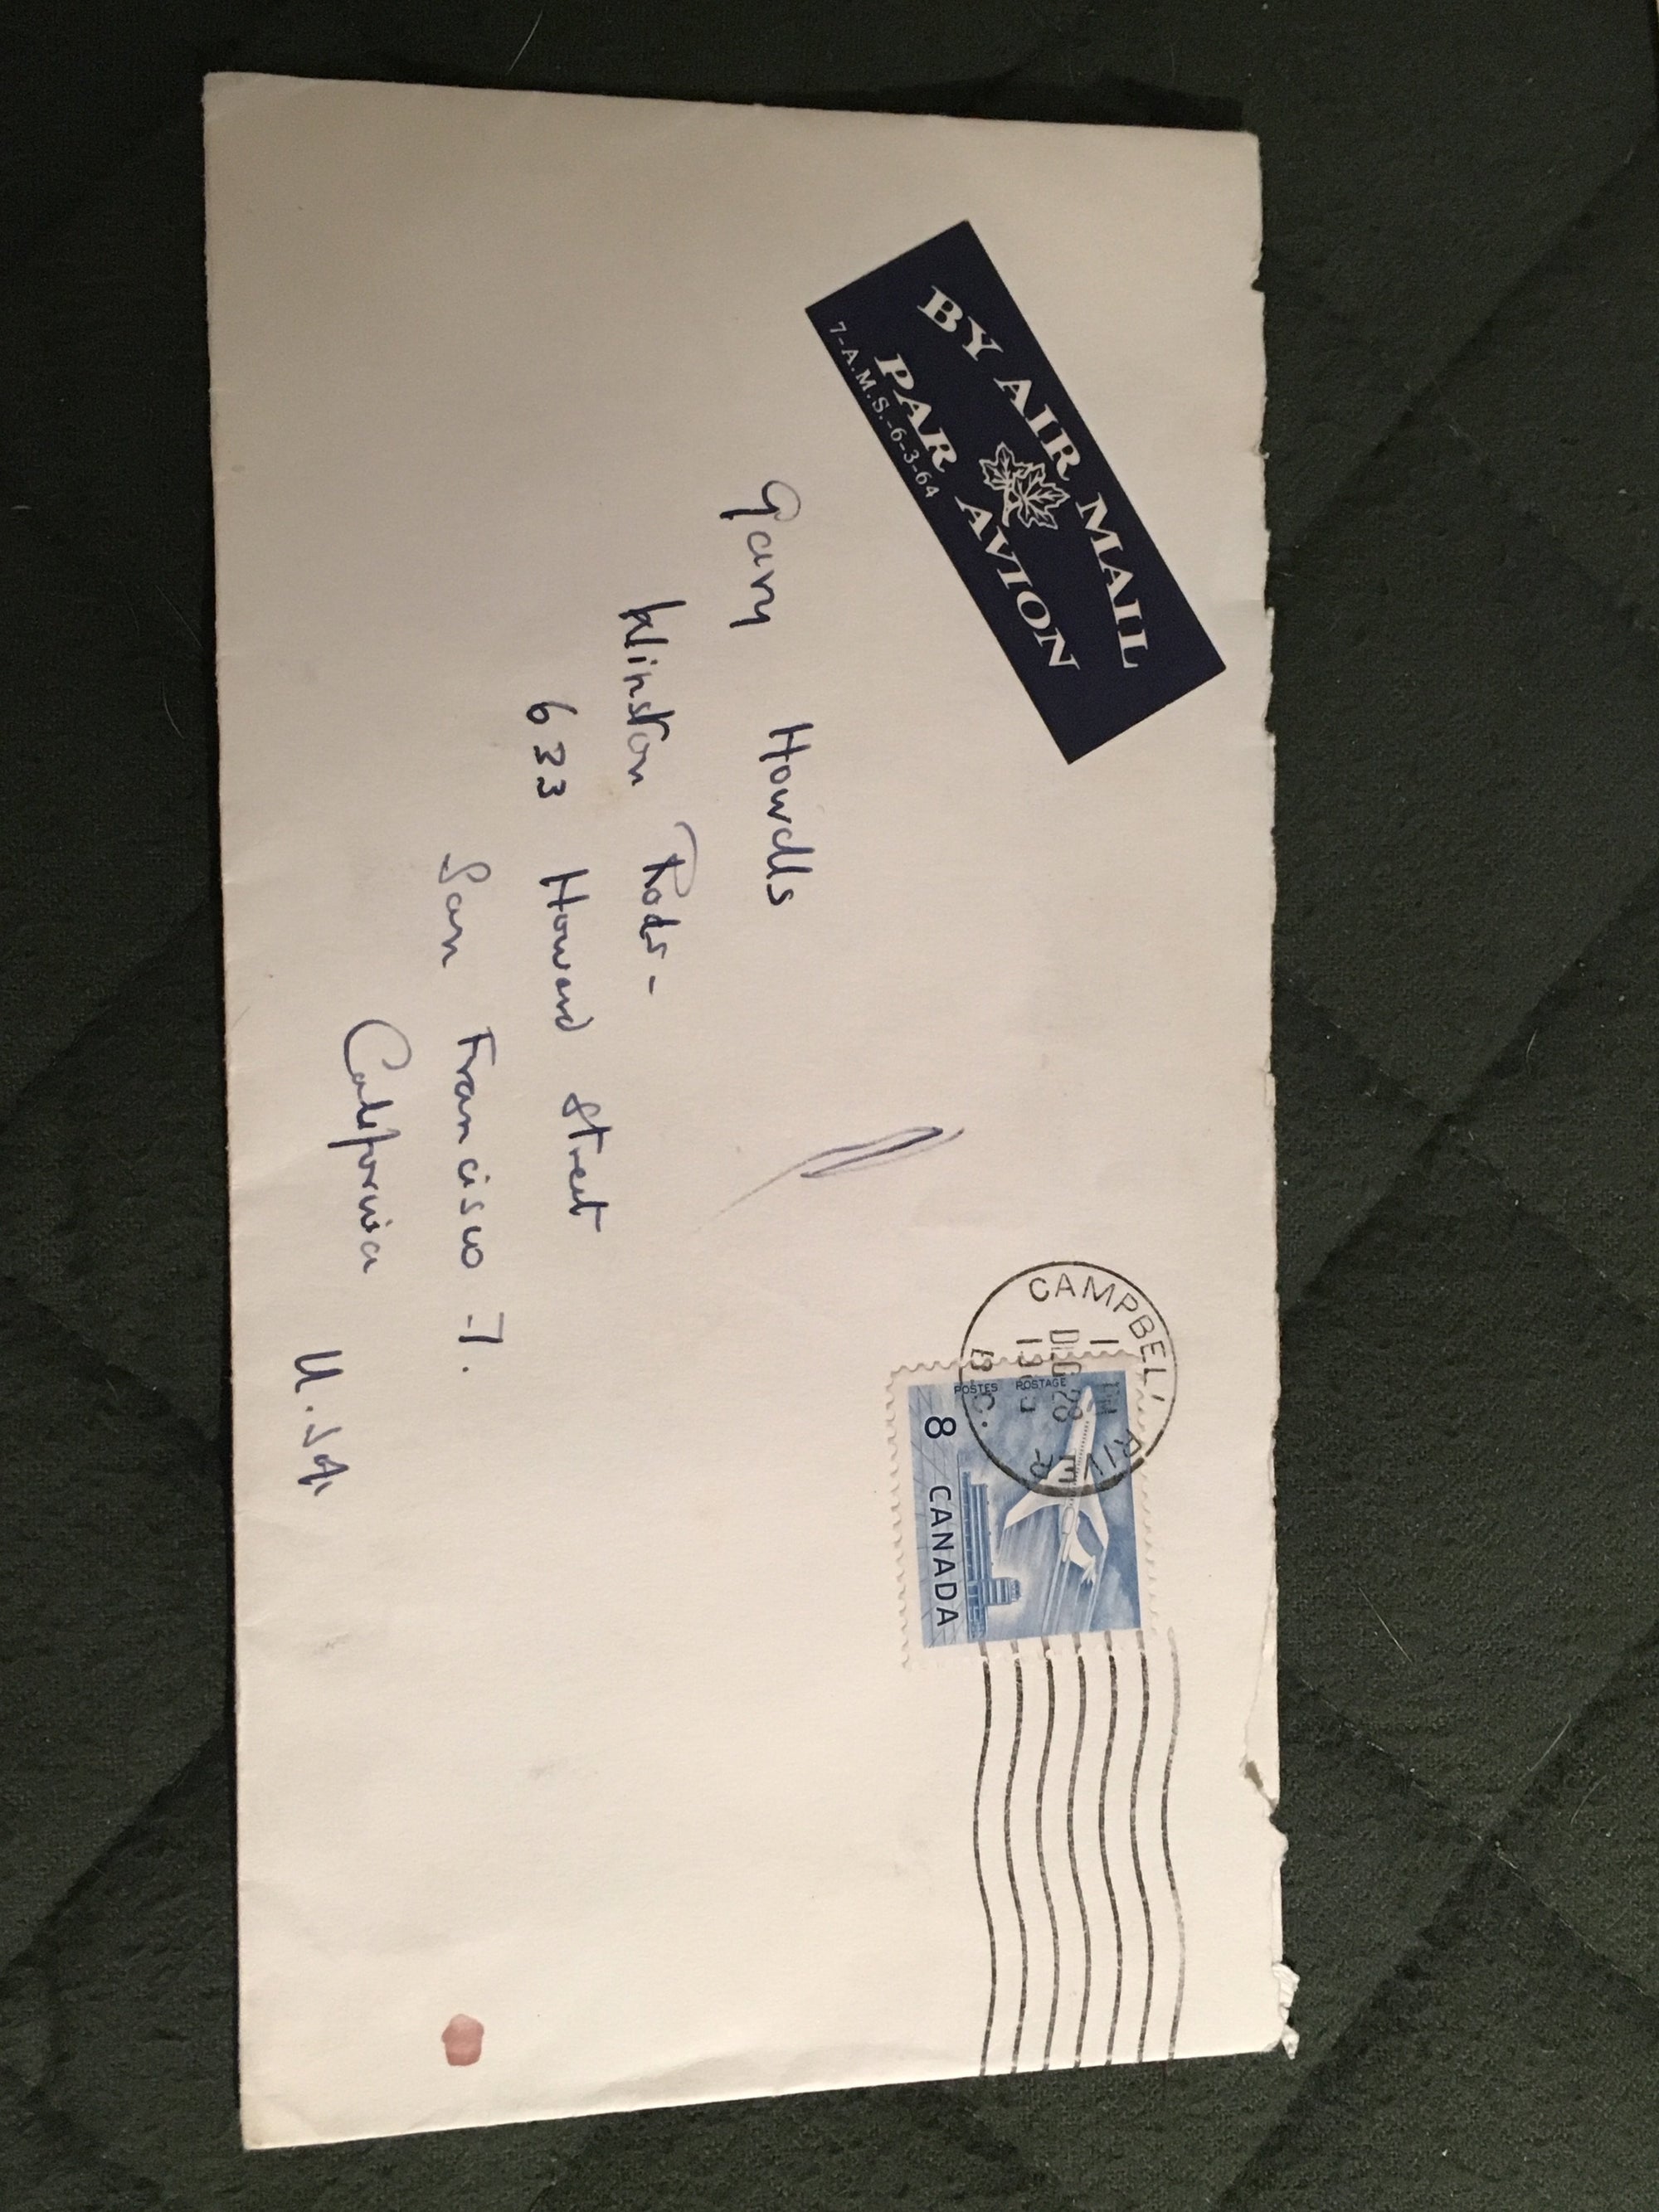 BY AIR MAIL
PAR AVION
7-A.M.S.-6-3-64
CAMPBELL
DEC 28
B.C.
POSTES POSTAGE
8 CANADA
Gary Howells
Winston Rods-
633 Howard Street
San Francisco 7.
California
U.S.A